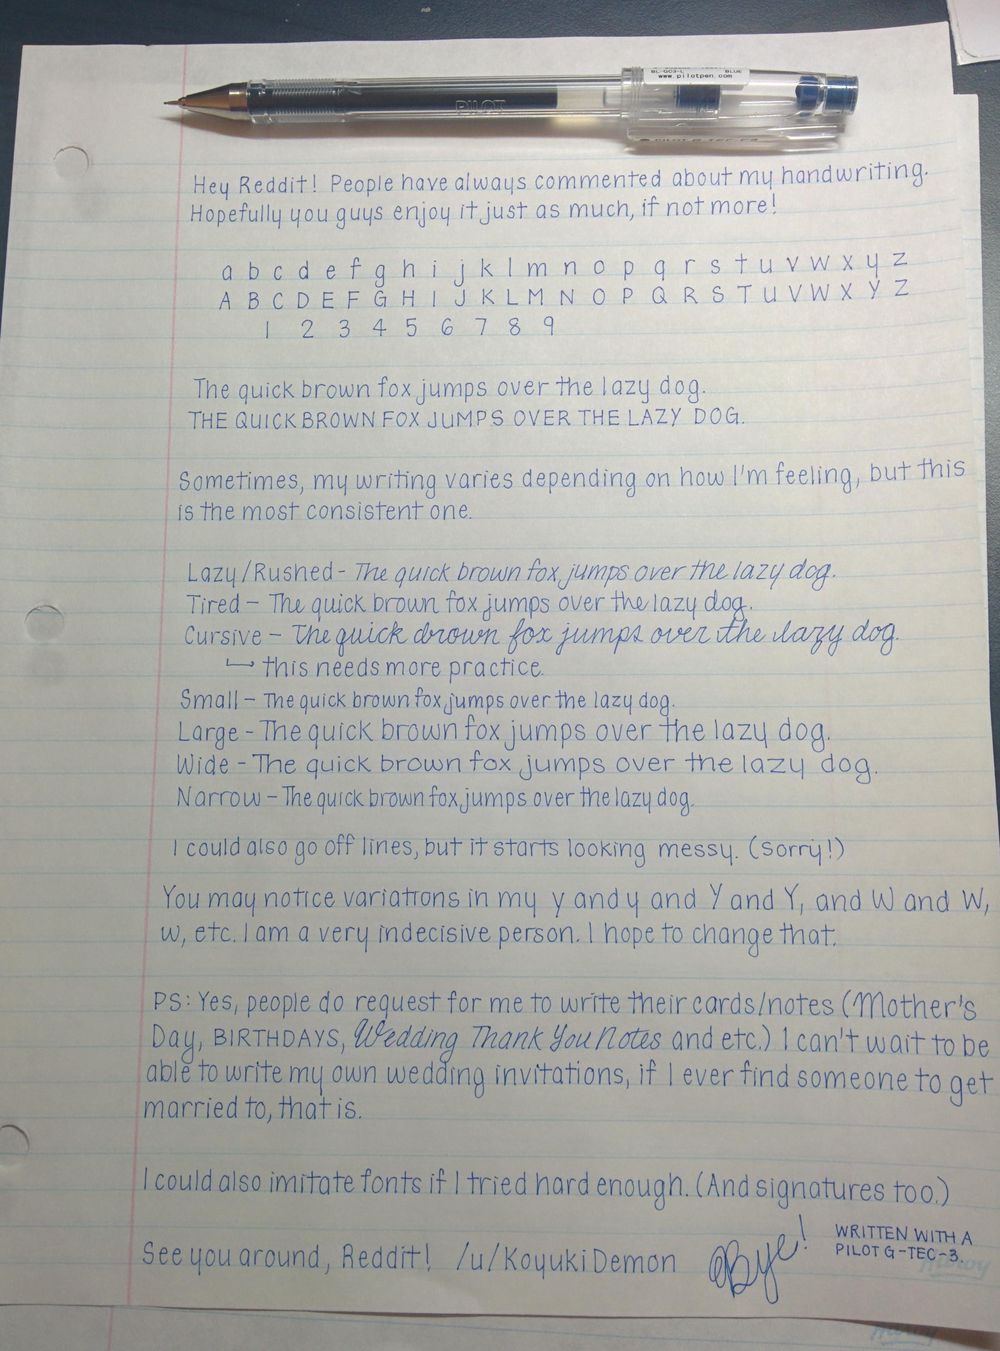 BL-GC3-L BLUE
www.pilotpen.com
PILOT
Hey Reddit! People have always commented about my handwriting.
Hopefully you guys enjoy it just as much, if not more!
a b c d e f g h i j k l m n o p q r s t u v w x y z
A B C D E F G H I J K L M N O P Q R S T U V W X Y Z
1 2 3 4 5 6 7 8 9
The quick brown fox jumps over the lazy dog.
THE QUICK BROWN FOX JUMPS OVER THE LAZY DOG.
Sometimes, my writing varies depending on how I'm feeling, but this
is the most consistent one.
Lazy/Rushed - The quick brown fox jumps over the lazy dog.
Tired - The quick brown fox jumps over the lazy dog.
Cursive - The quick brown fox jumps over the lazy dog.
↳ this needs more practice.
Small - The quick brown fox jumps over the lazy dog.
Large - The quick brown fox jumps over the lazy dog.
Wide - The quick brown fox jumps over the lazy dog.
Narrow - The quick brown fox jumps over the lazy dog.
I could also go off lines, but it starts looking messy. (Sorry!)
You may notice variations in my y and y and Y and Y, and W and W,
w, etc. I am a very indecisive person. I hope to change that.
PS: Yes, people do request for me to write their cards/notes (Mother's
Day, BIRTHDAYS, Wedding Thank You Notes and etc.) I can't wait to be
able to write my own wedding invitations, if I ever find someone to get
married to, that is.
I could also imitate fonts if I tried hard enough. (And signatures too.)
See you around, Reddit! /u/KoyukiDemon Bye!
WRITTEN WITH A
PILOT G-TEC-3.